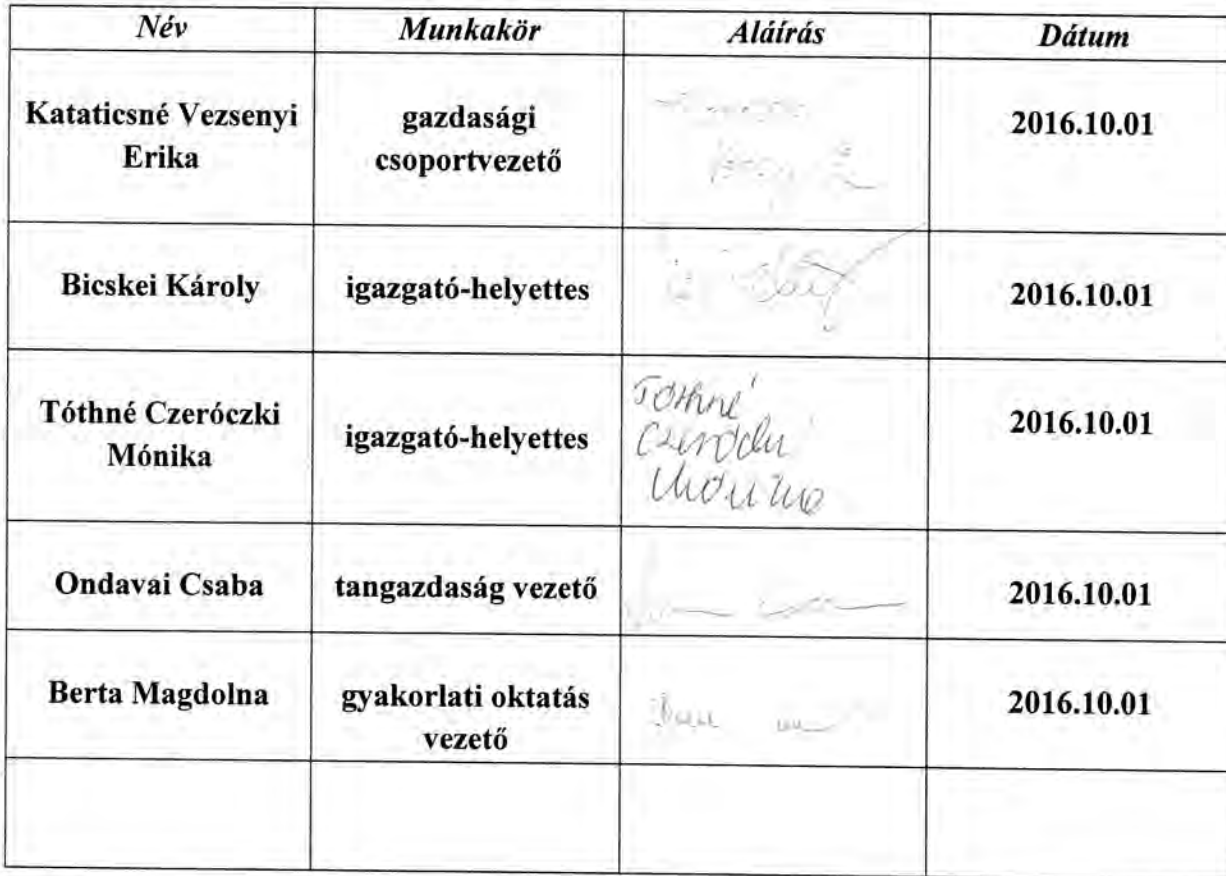 Név Munkakör Aláírás Dátum
Kataticsné Vezsenyi
Erika
gazdasági
csoportvezető
2016.10.01
Bicskei Károly
igazgató-helyettes
2016.10.01
Tóthné Czeróczki
Mónika
igazgató-helyettes
Tóthné
Czeróczki
Mónika
2016.10.01
Ondavai Csaba
tangazdaság vezető
2016.10.01
Berta Magdolna
gyakorlati oktatás
vezető
2016.10.01